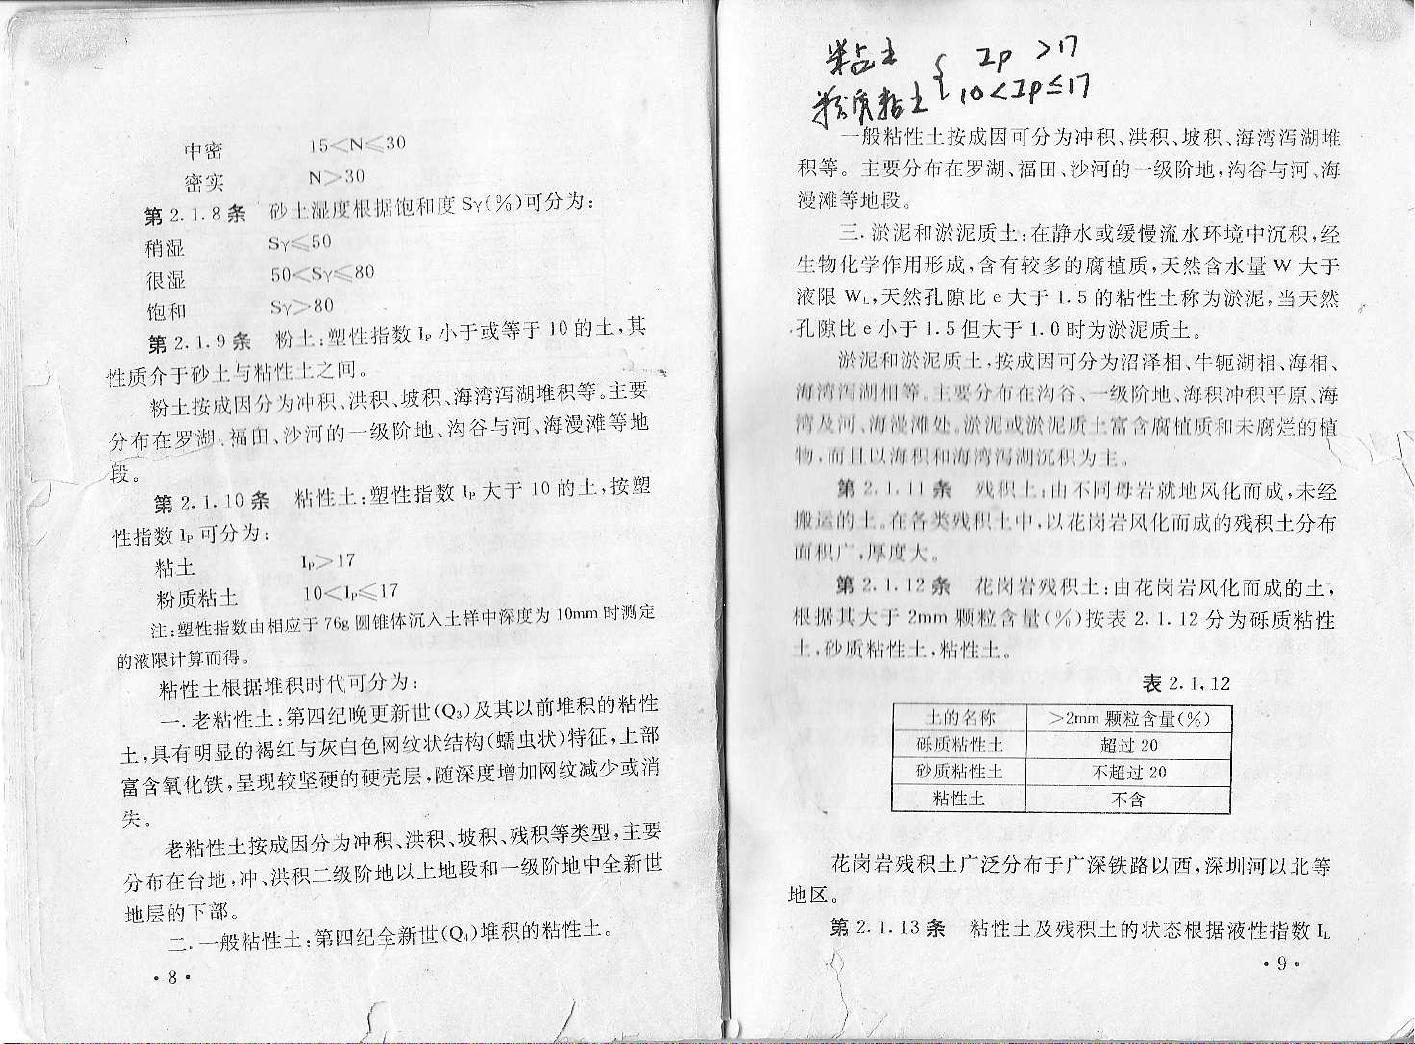 中密 15<N≤30
密实 N>30
第2.1.8条 砂土湿度根据饱和度Sγ(%)可分为:
稍湿 Sγ≤50
很湿 50<Sγ≤80
饱和 Sγ>80
第2.1.9条 粉土:塑性指数Iₚ小于或等于10的土,其
性质介于砂土与粘性土之间。
粉土按成因分为冲积、洪积、坡积、海湾泻湖堆积等。主要
分布在罗湖、福田、沙河的一级阶地、沟谷与河、海漫滩等地
段。
第2.1.10条 粘性土:塑性指数Iₚ大于10的土,按塑
性指数Iₚ可分为:
粘土 Iₚ>17
粉质粘土 10<Iₚ≤17
注:塑性指数由相应于76g圆锥体沉入土样中深度为10mm时测定
的液限计算而得。
粘性土根据堆积时代可分为:
一.老粘性土:第四纪晚更新世(Q₃)及其以前堆积的粘性
土,具有明显的褐红与灰白色网纹状结构(蠕虫状)特征,上部
富含氧化铁,呈现较坚硬的硬壳层,随深度增加网纹减少或消
失。
老粘性土按成因分为冲积、洪积、坡积、残积等类型,主要
分布在台地,冲、洪积二级阶地以上地段和一级阶地中全新世
地层的下部。
二.一般粘性土:第四纪全新世(Q₄)堆积的粘性土。
·8·
粘土 { Ip >17
粉质粘土 10<Ip≤17
一般粘性土按成因可分为冲积、洪积、坡积、海湾泻湖堆
积等。主要分布在罗湖、福田、沙河的一级阶地,沟谷与河、海
漫滩等地段。
三.淤泥和淤泥质土:在静水或缓慢流水环境中沉积,经
生物化学作用形成,含有较多的腐植质,天然含水量W大于
液限W_L,天然孔隙比e大于1.5的粘性土称为淤泥,当天然
孔隙比e小于1.5但大于1.0时为淤泥质土。
淤泥和淤泥质土,按成因可分为沼泽相、牛轭湖相、海相、
海湾泻湖相等。主要分布在沟谷、一级阶地、海积冲积平原、海
湾及河、海漫滩处。淤泥或淤泥质土富含腐植质和未腐烂的植
物,而且以海积和海湾泻湖沉积为主。
第2.1.11条 残积土:由不同母岩就地风化而成,未经
搬运的土。在各类残积土中,以花岗岩风化而成的残积土分布
面积广,厚度大。
第2.1.12条 花岗岩残积土:由花岗岩风化而成的土,
根据其大于2mm颗粒含量(%)按表2.1.12分为砾质粘性
土,砂质粘性土,粘性土。
表2.1.12
土的名称 >2mm颗粒含量(%)
砾质粘性土 超过20
砂质粘性土 不超过20
粘性土 不含
花岗岩残积土广泛分布于广深铁路以西,深圳河以北等
地区。
第2.1.13条 粘性土及残积土的状态根据液性指数I_L
·9·